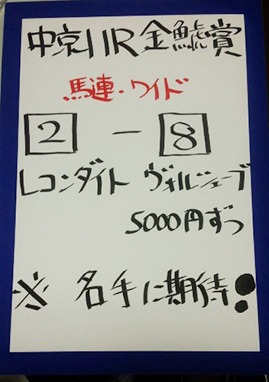 中京11R金鯱賞
馬連・ワイド
2 ー 8
レコンダイト ヴォルシェーブ
5000円ずつ
※ 名手に期待!